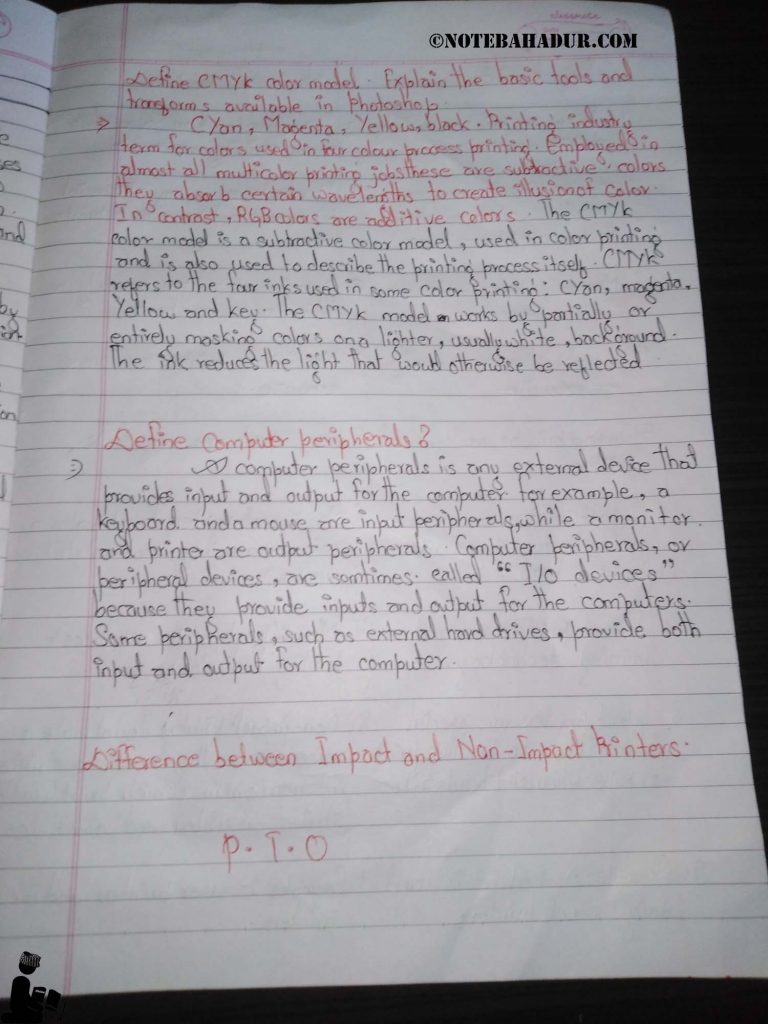 classmate
©NOTEBAHADUR.COM
Define CMYK color model. Explain the basic tools and
transforms available in Photoshop.
⇒ CYan, Magenta, Yellow, black. Printing industry
term for colors used in four colour process printing. Employed in
almost all multicolor printing jobsthese are subtractive colors
they absorb certain wavelenths to create illusionof color.
In contrast, RGB colors are additive colors. The CMYK
color model is a subtractive color model, used in color printing
and is also used to describe the printing process itself. CMYK
refers to the four inks used in some color printing: CYan, magenta,
Yellow and key. The CMYK model works by partially or
entirely masking colors on a lighter, usually white, background.
The ink reduces the light that would otherwise be reflected
Define Computer peripherals?
⇒ A computer peripherals is any external device that
provides input and output for the computer. for example, a
keyboard and a mouse are input peripherals, while a monitor
and printer are output peripherals. Computer peripherals, or
peripheral devices, are somtimes called “I/O devices”
because they provide inputs and output for the computers.
Some peripherals, such as external hard drives, provide both
input and output for the computer.
Difference between Impact and Non-Impact Printers.
P.T.O